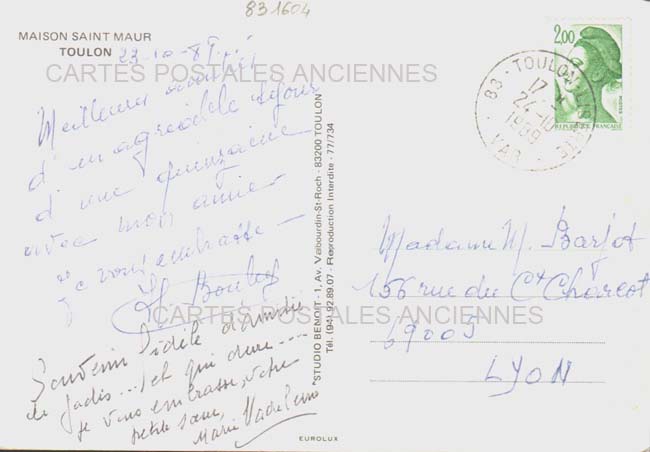 831604
MAISON SAINT MAUR
TOULON
23-10-89
CARTES POSTALES ANCIENNES
Meilleur souvenir
d'un agréable séjour
d'une quinzaine
avec mon amie
Je vous embrasse -
Souvenir fidèle d'amitié
de jadis... et qui dure....
je vous embrasse, votre
petite sœur,
Marie Madeleine
STUDIO BENOIT - 1, Av. Valbourdin-St-Roch - 83200 TOULON
Tél. (94) 92.89.07 - Reproduction Interdite - 77/734
EUROLUX
83 - TOULON
17 H
24-10
1989
VAR
2,00
REPUBLIQUE FRANÇAISE
Madame M. Barjot
156 rue du Ct Charcot
69005
LYON
CARTES POSTALES ANCIENNES